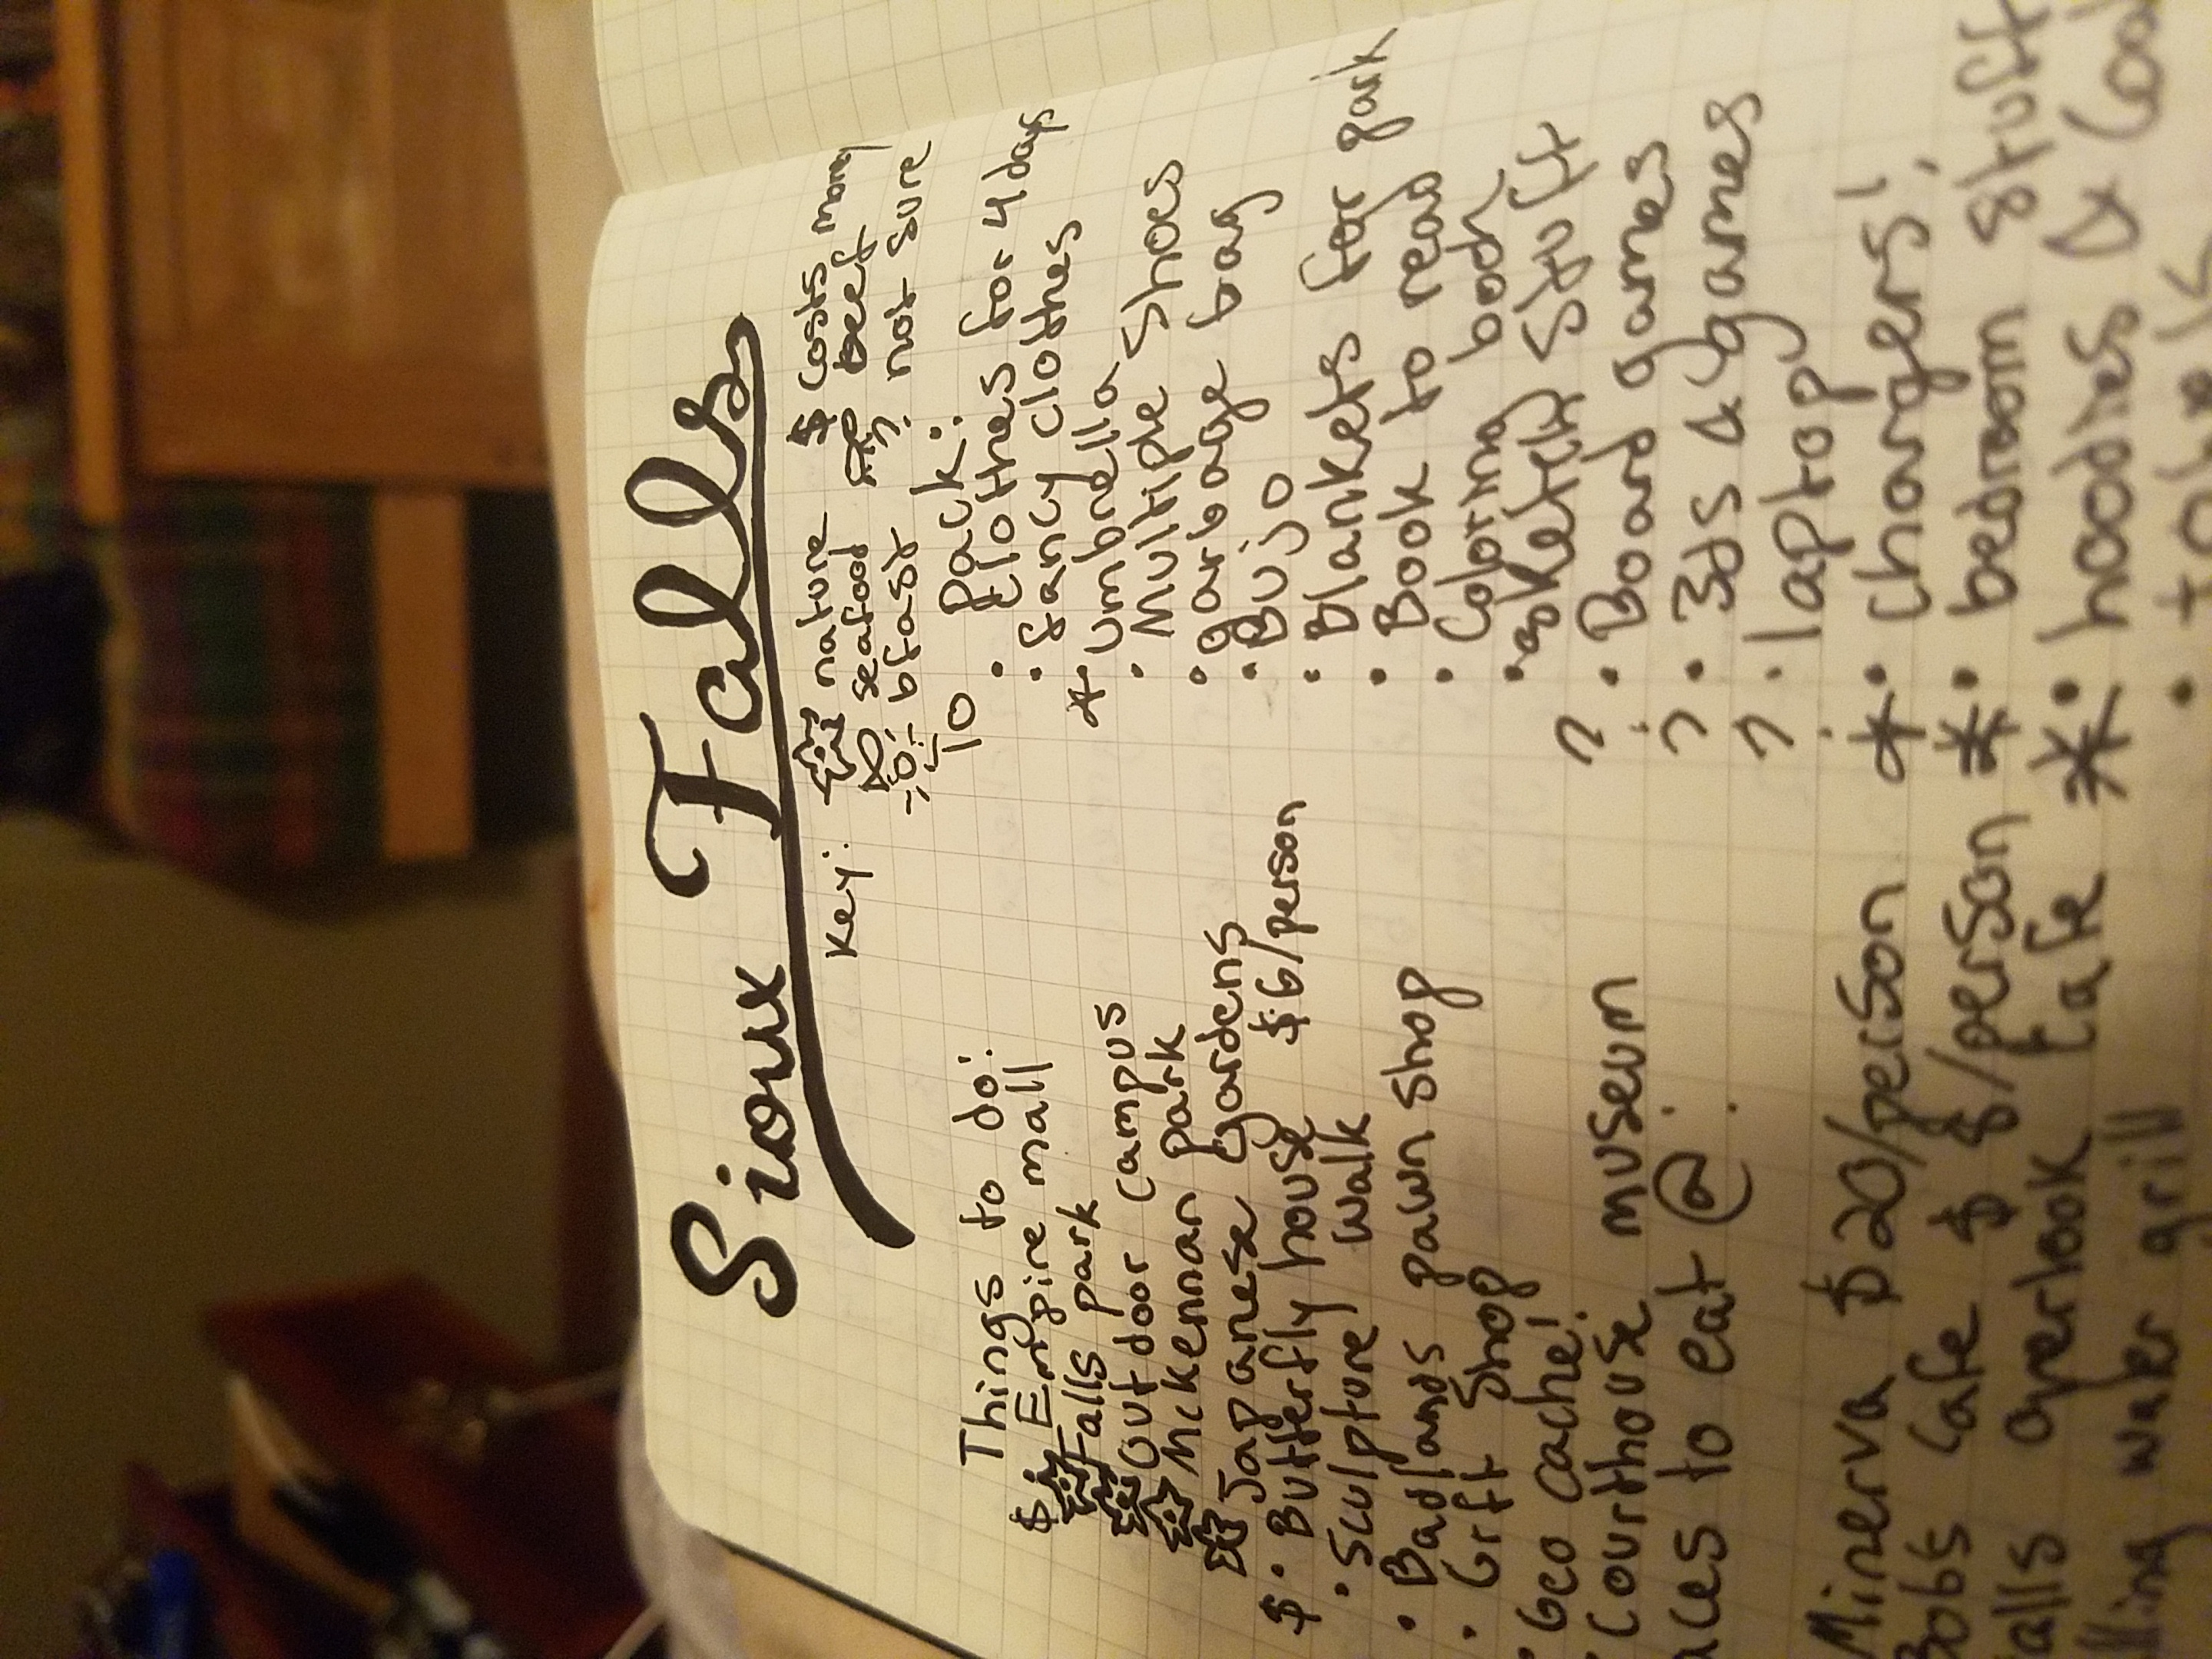 Sioux Falls
Key: nature $ costs money
seafood beef
bfast ? not sure
Things to do:
$ Empire mall
Falls park
Outdoor campus
McKennan park
Japanese gardens
$ • Butterfly house $6/person
• Sculpture walk
• Badlands pawn shop
• Gift shop
• Geo cache!
• Courthouse museum
to eat @:
Minerva $20/person
Bobs Cafe $ $/person
Falls overlook Cafe
water grill
To pack:
• Clothes for 4 days
• fancy clothes
* umbrella
• Multiple shoes
• garbage bag
• BUJO
• Blankets for park
• Book to read
• Coloring book
• sketch stuff
? • Board games
? • 3ds & games
? • laptop
* • Chargers!
* • bedroom stuff
* • hoodies &